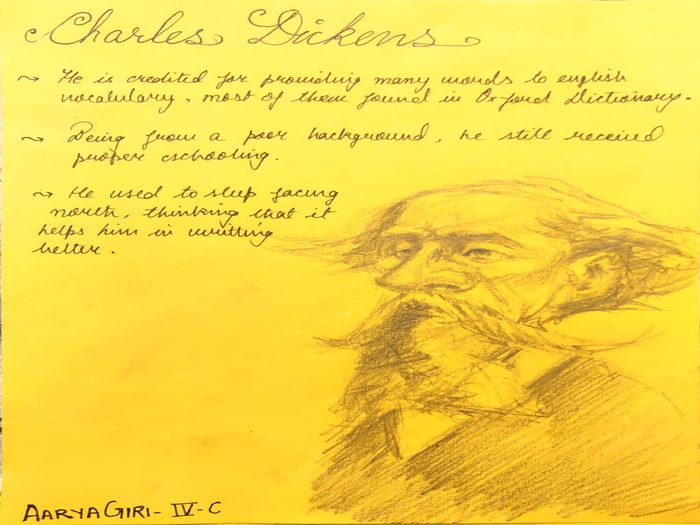 Charles Dickens
~ He is credited for providing many words to english
vocabulary, most of them found in Oxford Dictionary.
~ Being from a poor background, he still received
proper cschooling.
~ He used to sleep facing
north, thinking that it
helps him in writting
better.
AARYA GIRI - IV - C